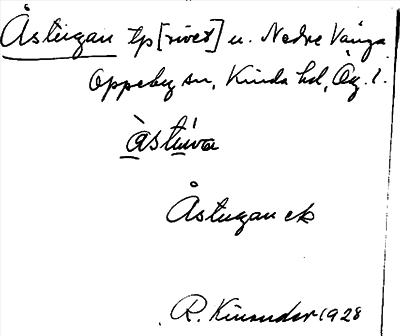 Åstugan tp [rivet] u. Nedre Vånga
Oppeby sn, Kinda hd, Ög. l.
àstu̇va
Åstugan ek
R. Kinander 1928